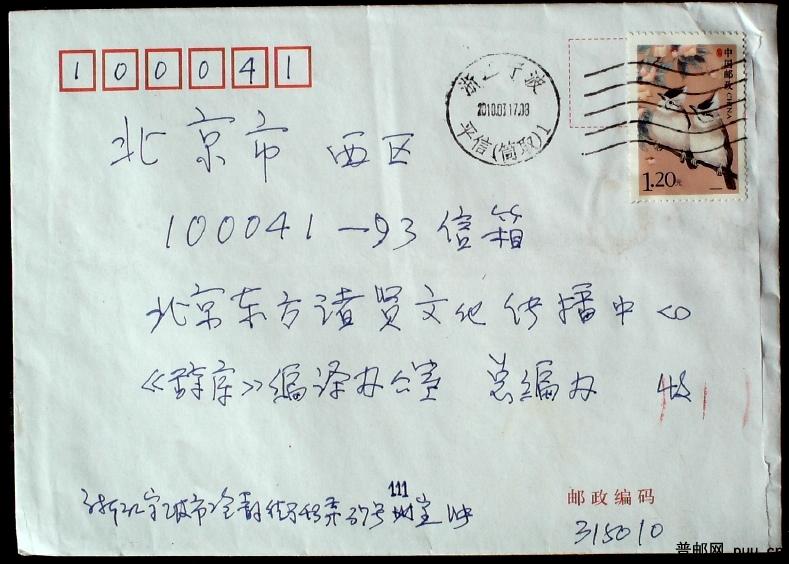 100041
浙江宁波
2010.03.17.08
平信(筒取)1
中国邮政 CHINA
1.20元
北京市 西区
100041-93信箱
北京东方诸贤文化传播中心
《辞库》编译办公室 总编办 收
浙江宁波市 街 弄37号111室
邮政编码
315010
普邮网 puu.cn